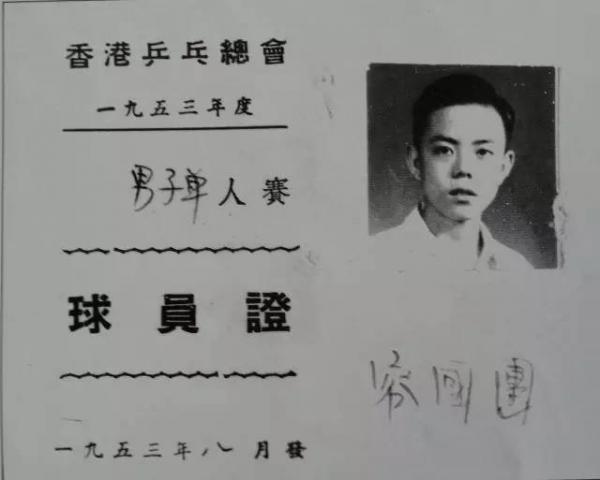 香港乒乓總會
一九五三年度
男子单人賽
球員證
一九五三年八月發
容國團